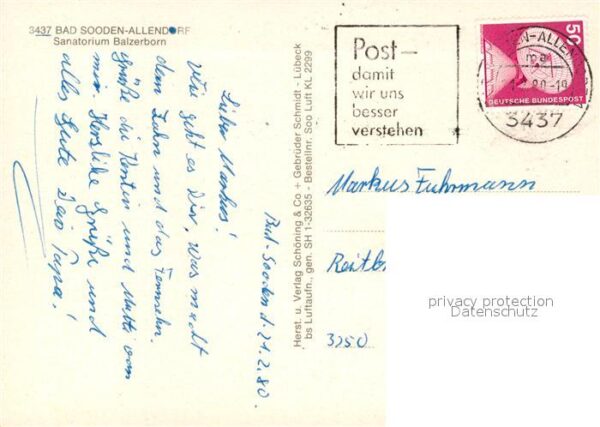 3437 BAD SOODEN-ALLENDORF
Sanatorium Balzerborn
Bad-Sooden d. 21.2.80.
Lieber Markus!
Wie geht es Dir, was macht
dein Zahn und das Fernsehn.
Grüße die und Mutti von
mir. Herzliche Grüße und
alles Gute Dein Papa!
Herst. u. Verlag Schöning & Co + Gebrüder Schmidt - Lübeck
bs Luftaufn., gen. SH 1-32635 - Bestellnr. Soo Luft KL 2299
Post –
damit
wir uns
besser
verstehen
50
DEUTSCHE BUNDESPOST
3437
Markus Fuhrmann
3250
privacy protection
Datenschutz